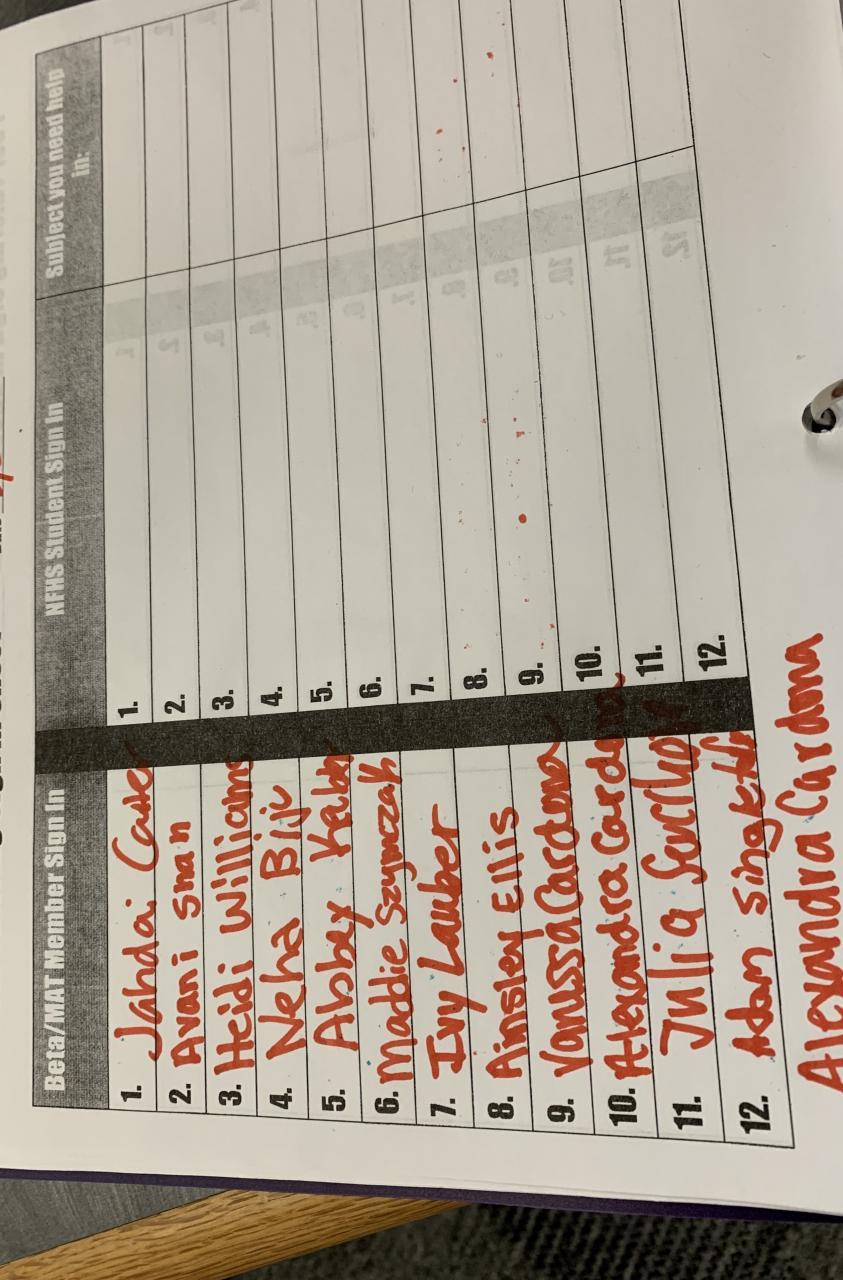 Beta/MAT Member Sign In NFHS Student Sign In Subject you need help in:
1. Jahdai Carter 1.
2. Avani Shah 2.
3. Heidi Williams 3.
4. Neha Biju 4.
5. Abbey 5.
6. Maddie Szymczak 6.
7. Ivy Lauber 7.
8. Ainsley Ellis 8.
9. Vanussa Cardona 9.
10. Alexandra Cardona 10.
11. Julia 11.
12. Adam Singleton 12.
Alexandra Cardona